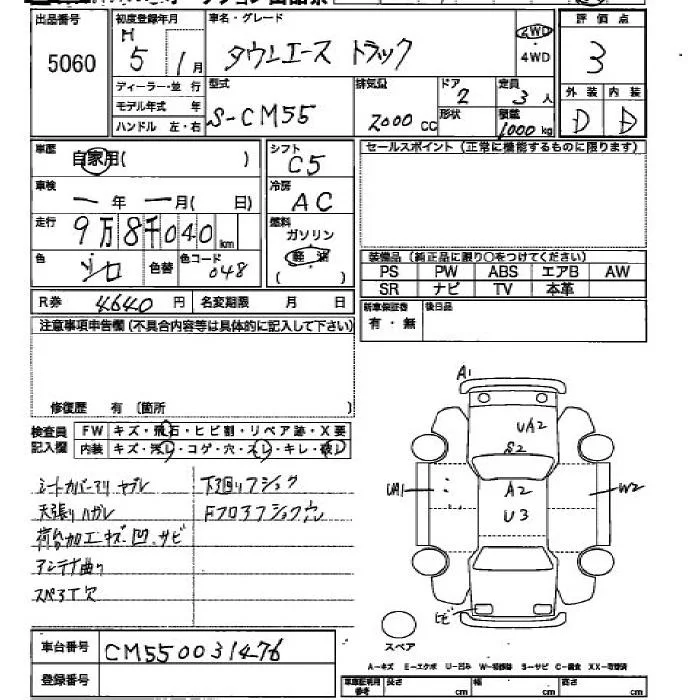 出品番号 初度登録年月 車名・グレード 2WD 評価点
5060 H 5 1月 タウンエース トラック ・ 3
4WD
ディーラー・並行 型式 排気量 ドア 定員 外装 内装
モデル年式 年 S-CM55 2000 CC 2 3人 D D
ハンドル 左・右 形状 積載 1000kg
車歴 自家用( ) シフト C5 セールスポイント (正常に機能するものに限ります)
車検 一年 一月( 日) 冷房 AC
走行 9万8千040km 燃料 ガソリン
軽油
( )
色 シロ 色替 色コード 048
装備品 (純正品に限り○をつけてください)
PS PW ABS エアB AW
SR ナビ TV 本革
R券 4640円 名変期限 月 日
新車保証書 有・無 後日品
注意事項申告欄 (不具合内容等は具体的に記入して下さい)
修復歴 有 (箇所 )
検査員 FW キズ・飛石・ヒビ割・リペア跡・X要
記入欄 内装 キズ・汚レ・コゲ・穴・スレ・キレ・破レ
シートカバーアリ ヤブレ 下廻リフショク
天張リハガレ Fフロアフショク穴
荷台加工キズ、凹、サビ
アンテナ曲り
スペアT欠
A1
UA2
S2
UA1 A2 W2
U3
ヒビ
スペア
車台番号 CM550031476
登録番号
A-キズ E-エクボ U-凹み S-サビ C-腐食 XX-交換済
長さ cm 幅 cm 高さ cm